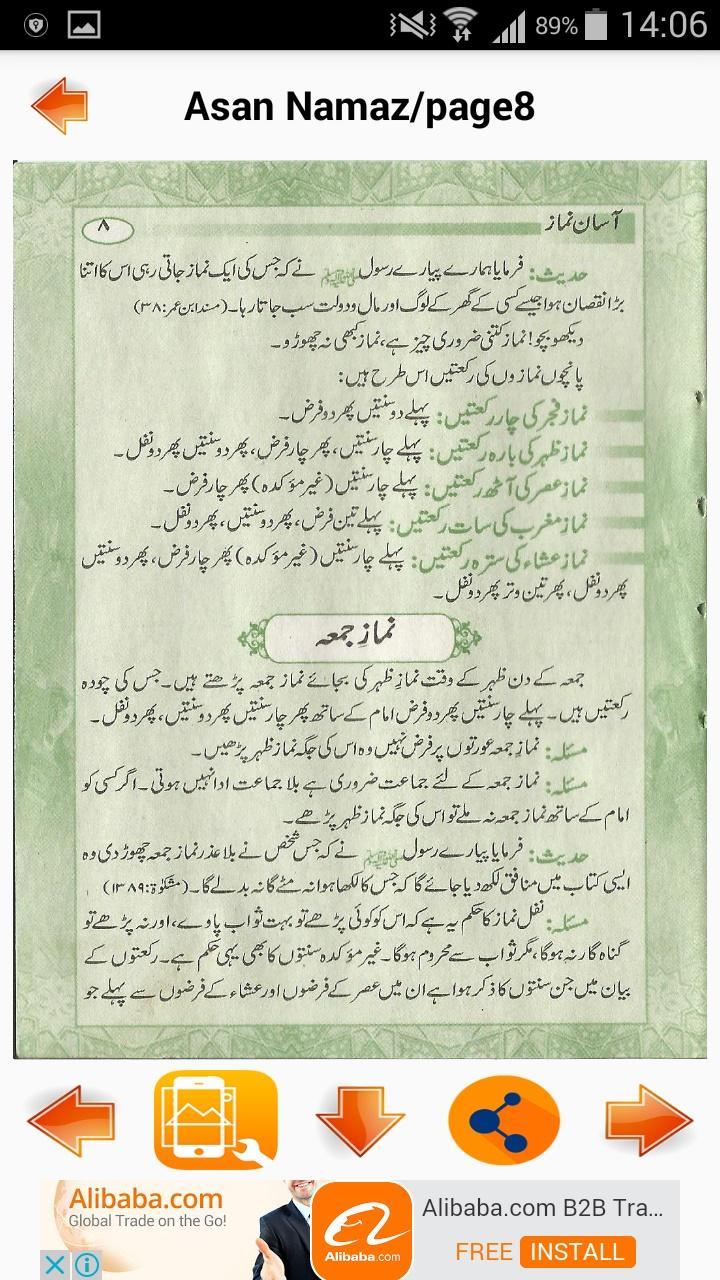 89% 14:06
Asan Namaz/page8
آسان نماز ۸
حدیث: فرمایا ہمارے پیارے رسول ﷺ نے کہ جس کی ایک نماز جاتی رہی اس کا اتنا
بڑا نقصان ہوا جیسے کسی کے گھر کے لوگ اور مال و دولت سب جاتا رہا۔ (مسند ابن عمر: ۳۸)
دیکھو بچو! نماز کتنی ضروری چیز ہے، نماز کبھی نہ چھوڑو۔
پانچوں نمازوں کی رکعتیں اس طرح ہیں:
نماز فجر کی چار رکعتیں: پہلے دو سنتیں پھر دو فرض۔
نماز ظہر کی بارہ رکعتیں: پہلے چار سنتیں، پھر چار فرض، پھر دو سنتیں پھر دو نفل۔
نماز عصر کی آٹھ رکعتیں: پہلے چار سنتیں (غیر مؤکدہ) پھر چار فرض۔
نماز مغرب کی سات رکعتیں: پہلے تین فرض، پھر دو سنتیں، پھر دو نفل۔
نماز عشاء کی سترہ رکعتیں: پہلے چار سنتیں (غیر مؤکدہ) پھر چار فرض، پھر دو سنتیں
پھر دو نفل، پھر تین وتر پھر دو نفل۔
نمازِ جمعہ
جمعہ کے دن ظہر کے وقت نمازِ ظہر کی بجائے نماز جمعہ پڑھتے ہیں۔ جس کی چودہ
رکعتیں ہیں۔ پہلے چار سنتیں پھر دو فرض امام کے ساتھ پھر چار سنتیں پھر دو سنتیں، پھر دو نفل۔
مسئلہ: نمازِ جمعہ عورتوں پر فرض نہیں وہ اس کی جگہ نماز ظہر پڑھیں۔
مسئلہ: نماز جمعہ کے لئے جماعت ضروری ہے بلا جماعت ادا نہیں ہوتی۔ اگر کسی کو
امام کے ساتھ نماز جمعہ نہ ملے تو اس کی جگہ نماز ظہر پڑھے۔
حدیث: فرمایا پیارے رسول ﷺ نے کہ جس شخص نے بلا عذر نماز جمعہ چھوڑ دی وہ
ایسی کتاب میں منافق لکھ دیا جائے گا کہ جس کا لکھا ہوا نہ مٹے گا نہ بدلے گا۔ (مشکوٰۃ: ۱۳۸۹)
مسئلہ: نفل نماز کا حکم یہ ہے کہ اس کو کوئی پڑھے تو بہت ثواب پاوے، اور نہ پڑھے تو
گناہ گار نہ ہوگا، مگر ثواب سے محروم ہوگا۔ غیر مؤکدہ سنتوں کا بھی یہی حکم ہے۔ رکعتوں کے
بیان میں جن سنتوں کا ذکر ہوا ہے ان میں عصر کے فرضوں اور عشاء کے فرضوں سے پہلے جو
Alibaba.com
Global Trade on the Go!
Alibaba.com
Alibaba.com B2B Tra...
FREE INSTALL